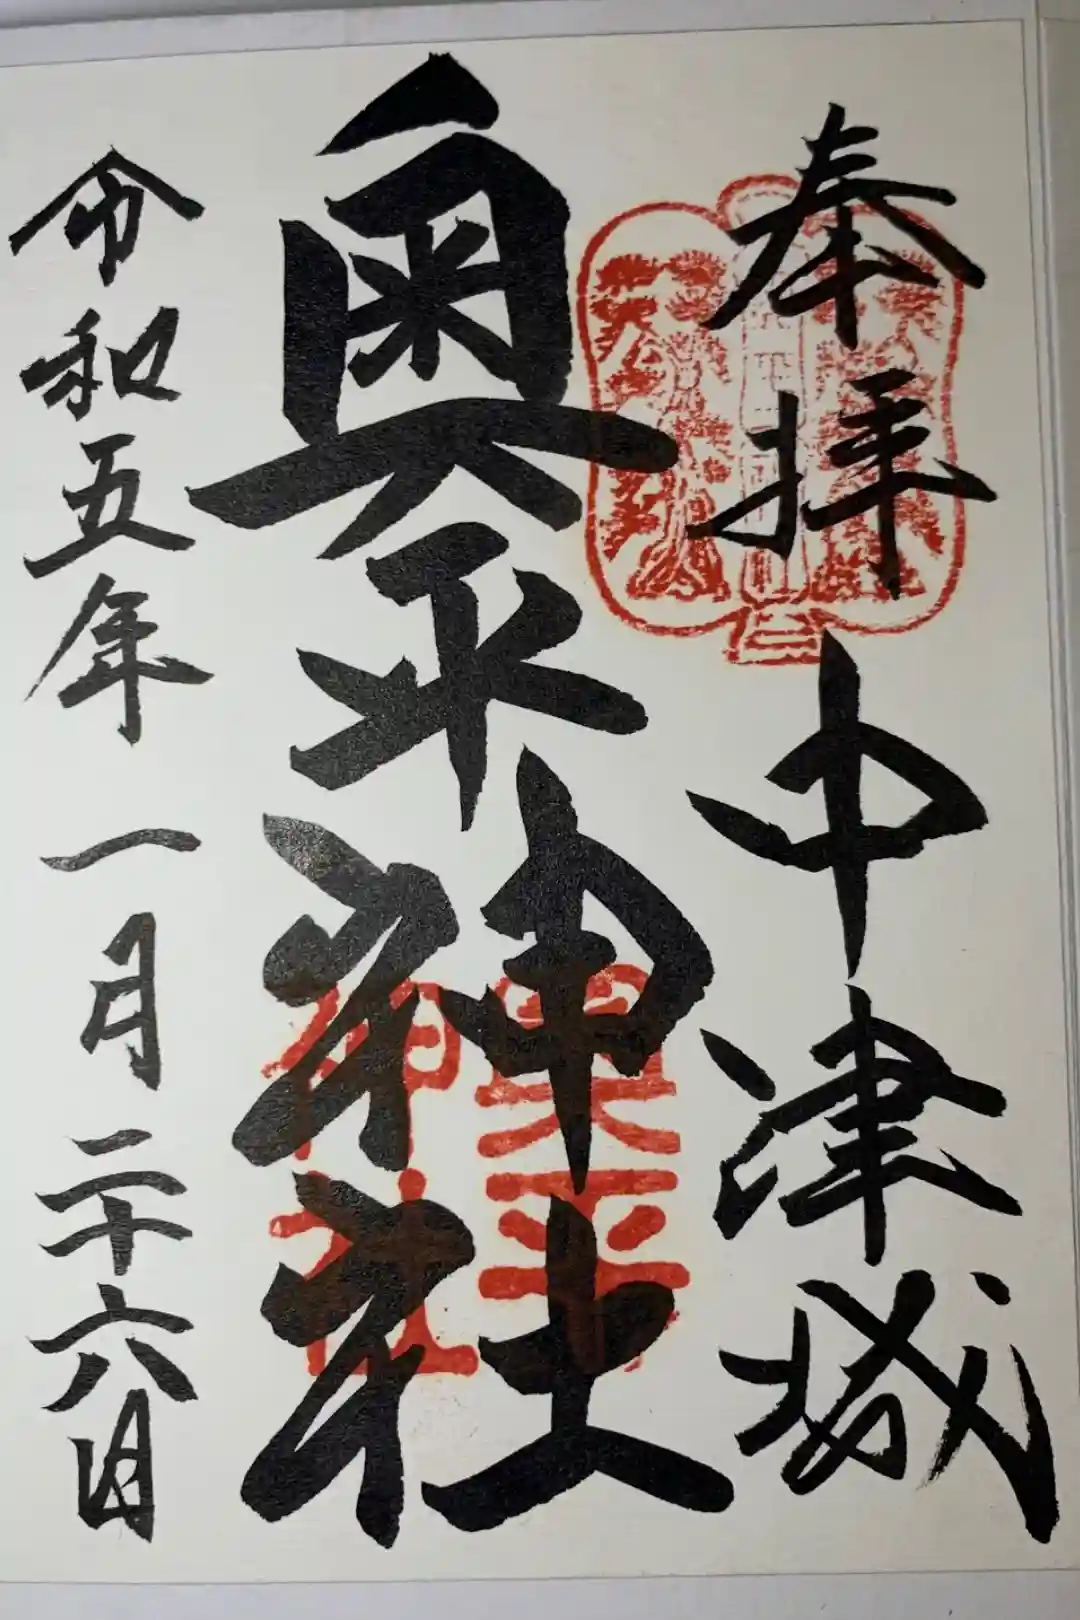 奉拝
中津城
奥平神社
奥平
神社
令和五年一月二十六日